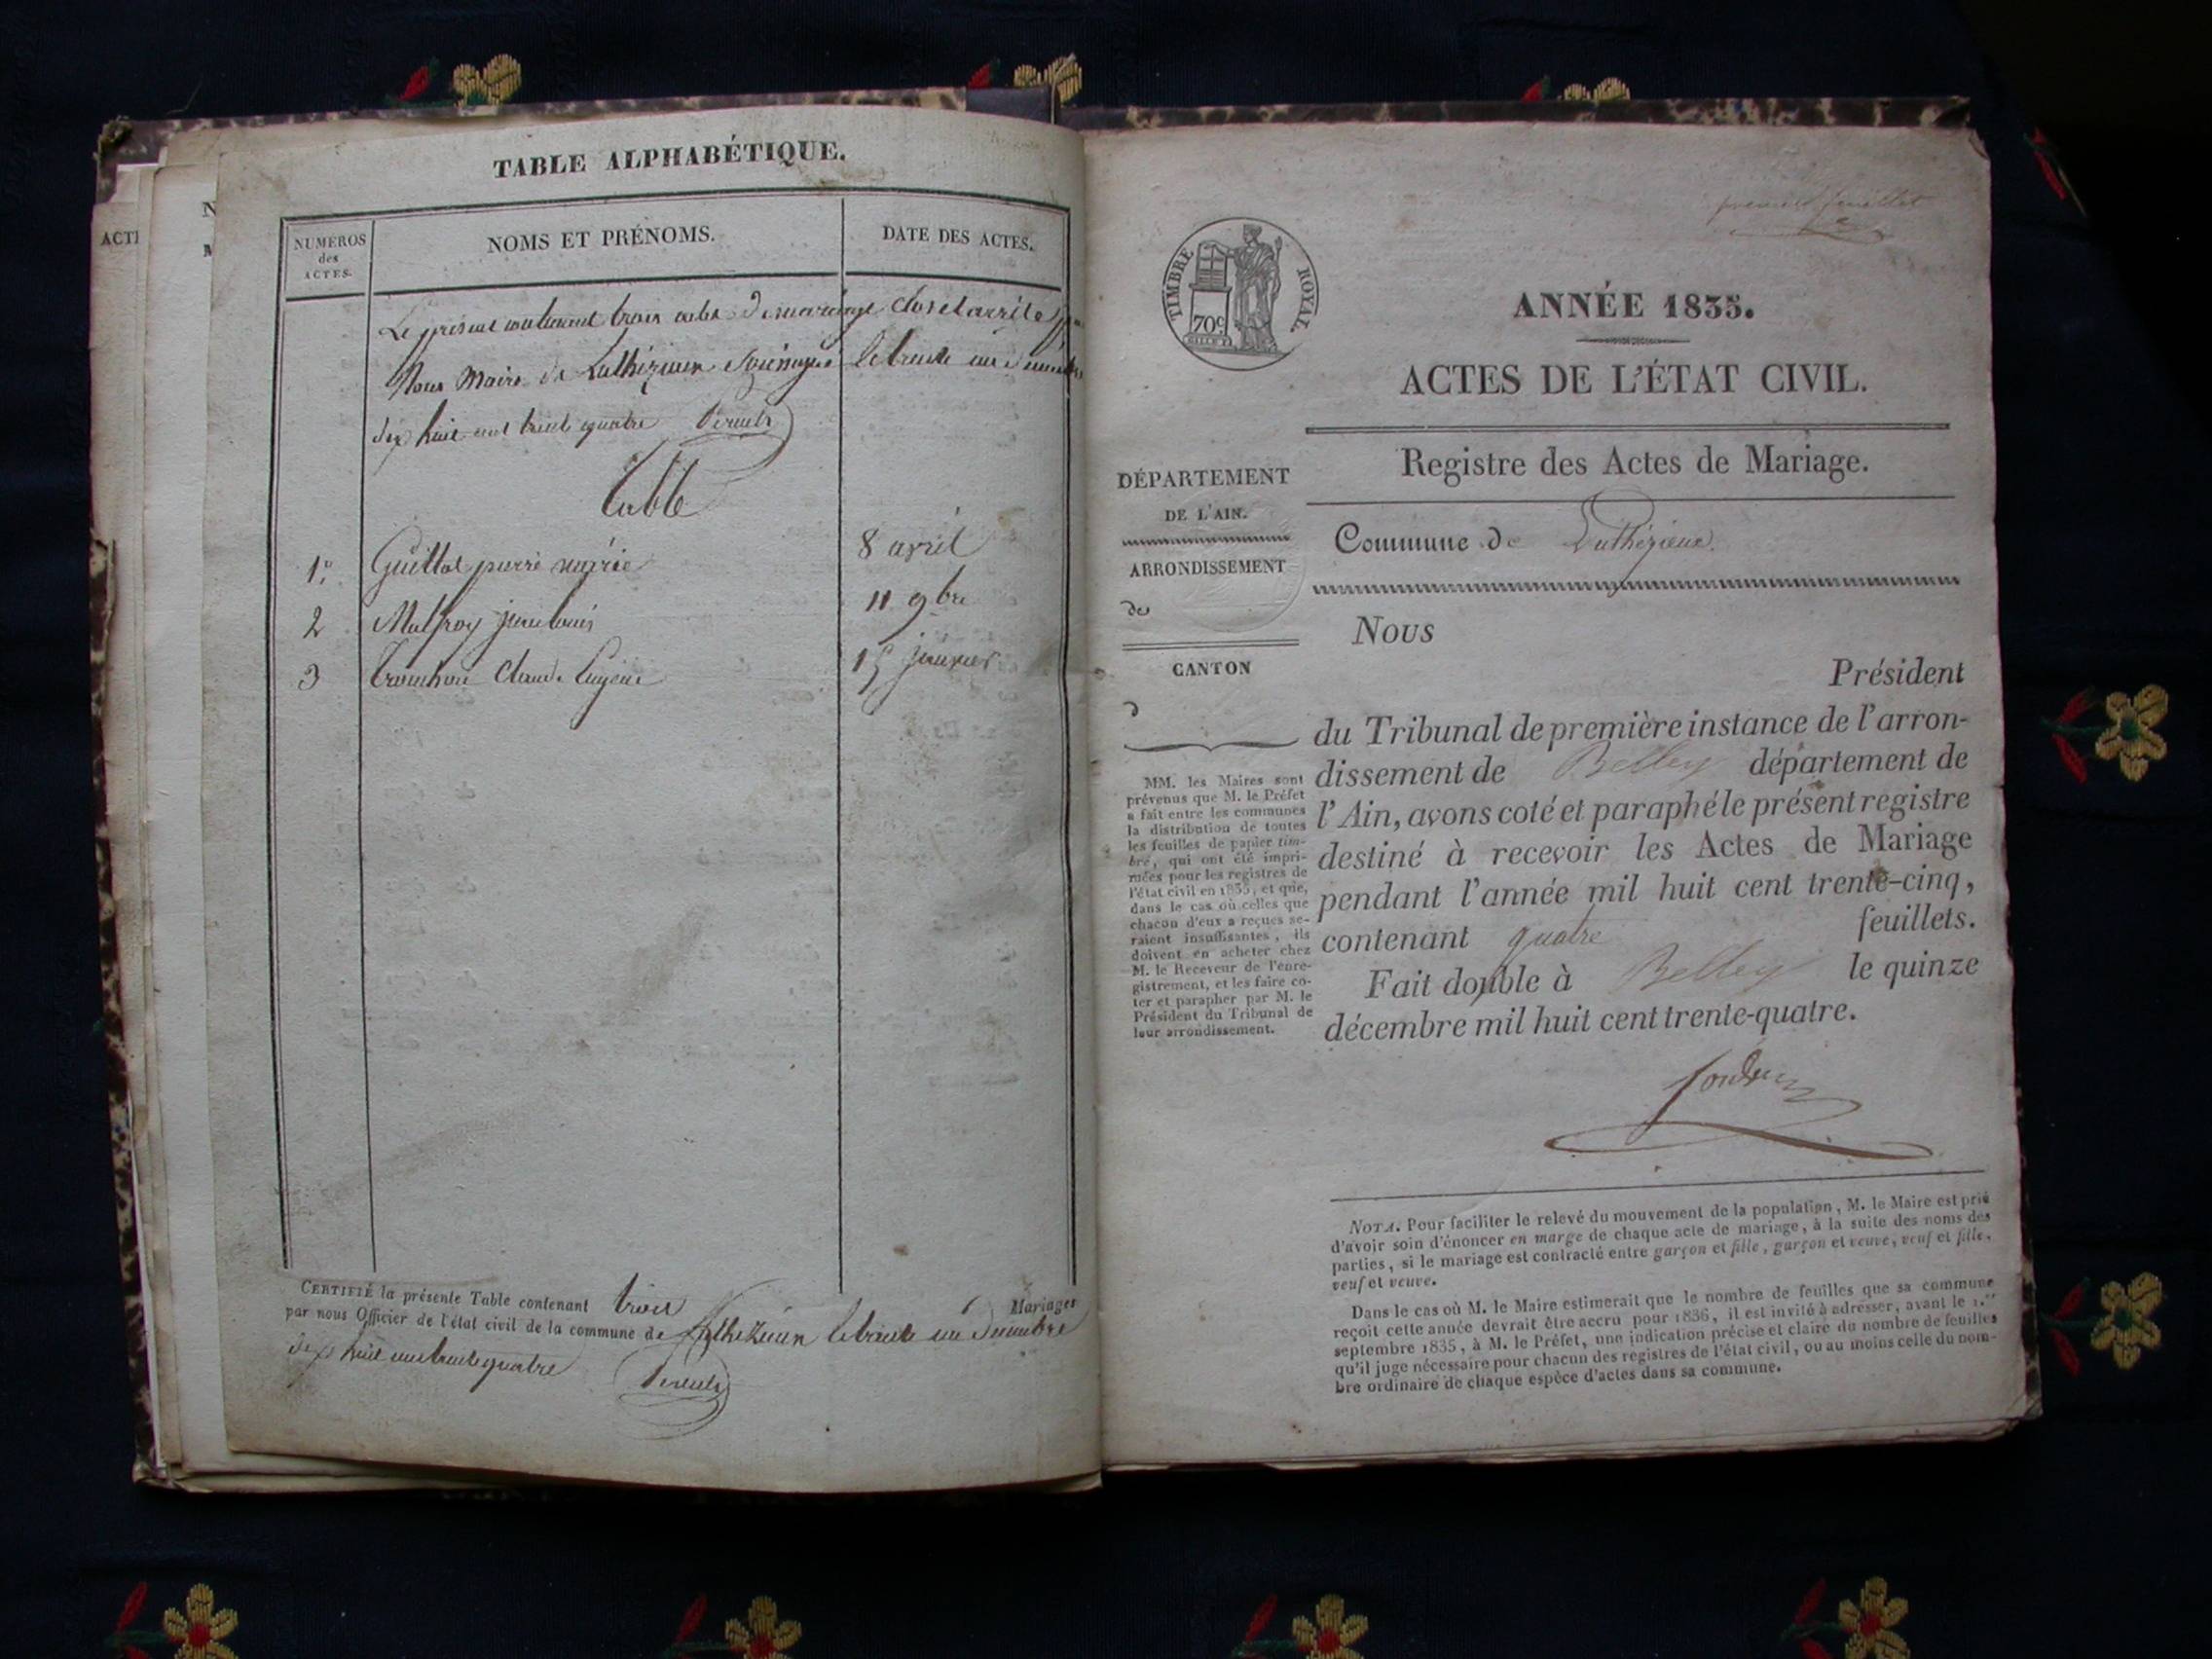 ACTE
TABLE ALPHABÉTIQUE.
NUMEROS
des
ACTES.
NOMS ET PRÉNOMS.
DATE DES ACTES.
Le présent contenant trois actes de mariage clos et arrêté par
Nous Maire de Luthézieu soussigné le trente un décembre
dix huit cent trente quatre
Table
1° Guillot pierre marie 8 avril
2 Malfroy jean louis 11 9bre
3 Claude Eugène 15 janvier
CERTIFIÉ la présente Table contenant trois Mariages
par nous Officier de l'état civil de la commune de Luthézieu le trente un décembre
dix huit cent trente quatre
premier feuillet
TIMBRE ROYAL.
70c
ANNÉE 1835.
ACTES DE L'ÉTAT CIVIL.
Registre des Actes de Mariage.
DÉPARTEMENT
DE L'AIN.
ARRONDISSEMENT
de
CANTON
d
Commune de Luthézieu.
Nous
Président
du Tribunal de première instance de l'arron-
dissement de Belley département de
l'Ain, avons coté et paraphé le présent registre
destiné à recevoir les Actes de Mariage
pendant l'année mil huit cent trente-cinq,
contenant quatre feuillets.
Fait double à Belley le quinze
décembre mil huit cent trente-quatre.
MM. les Maires sont
prévenus que M. le Préfet
a fait entre les communes
la distribution de toutes
les feuilles de papier tim-
bré, qui ont été impri-
mées pour les registres de
l'état civil en 1835, et que,
dans le cas où celles que
chacun d'eux a reçues se-
raient insuffisantes, ils
doivent en acheter chez
M. le Receveur de l'enre-
gistrement, et les faire co-
ter et parapher par M. le
Président du Tribunal de
leur arrondissement.
NOTA. Pour faciliter le relevé du mouvement de la population, M. le Maire est prié
d'avoir soin d'énoncer en marge de chaque acte de mariage, à la suite des noms des
parties, si le mariage est contracté entre garçon et fille, garçon et veuve, veuf et fille,
veuf et veuve.
Dans le cas où M. le Maire estimerait que le nombre de feuilles que sa commune
reçoit cette année devrait être accru pour 1836, il est invité à adresser, avant le 1.er
septembre 1835, à M. le Préfet, une indication précise et claire du nombre de feuilles
qu'il juge nécessaire pour chacun des registres de l'état civil, ou au moins celle du nom-
bre ordinaire de chaque espèce d'actes dans sa commune.